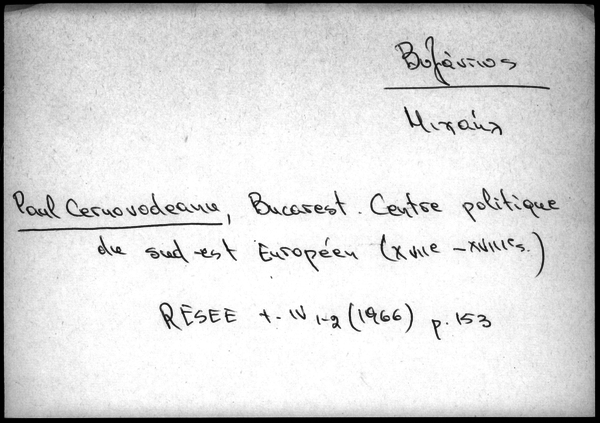 Βυζάντιος
Μιχαήλ
Paul Cernovodeanu, Bucarest. Centre politique
du sud-est Européen (XVIIe – XVIIIe s.)
RESEE t. IV 1-2 (1966) p. 153